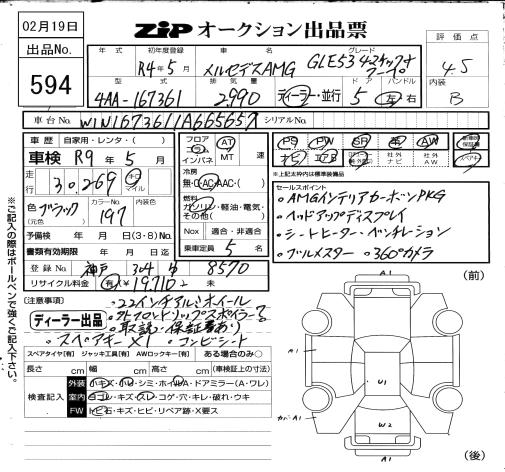 02月19日
ZiP オークション出品票
出品No.
594
年式
初年度登録
R4年5月
車名
メルセデスAMG
グレード
GLE53 4マチック+クーペ
評価点
4.5
内装
B
型式
4AA-167361
排気量
2,990
ディーラー・並行
ドア
5
ハンドル
左・右
車台No.
W1N1673611A665657
シリアルNo.
車歴 自家用・レンタ・( )
車検 R9年5月
走行 30,269 キロ マイル
色 ブラック (元色)
カラーNo. 197
内装色
予備検有効期限 年 月 日(3・8)No.
書類有効期限 年 月 日
登録No. 神戸 304 8570
リサイクル料金 有(¥19,710) 未
フロア 5 インパネ
AT MT 速
冷房
無・AC・AAC・( )
燃料
ガソリン・軽油・電気・その他( )
Nox 適合・非適合
乗車定員 5 名
PS PW SR 革 AW
ナビ エアB 社外ナビ 社外AW
保証書
スペアキー
*上記太枠内は標準装備品
セールスポイント
・AMGインテリアカーボンPKG
・ヘッドアップディスプレイ
・シートヒーター・ベンチレーション
・ブルメスター ・360°カメラ
(注意事項)
・22インチアルミホイール
ディーラー出品
・取説・保証書あり
・スペアキー×1 ・コンビシート
スペアタイヤ[有] ジャッキ工具[有] AWロックキー[有] ある場合のみ○
長さ cm 幅 cm 高さ cm (車検証上の寸法)
検査記入
外装 小キズ・小U・シミ・ホイルA・ドアミラー(A・ワレ)
室内 ヨゴレ・キズ・スレ・コゲ・穴・キレ・破れ・ウキ
FW トビ石・キズ・ヒビ・リペア跡・X要ス
※ご記入の際はボールペンで強くご記入下さい。
(前)
A1
A1
U1
カバA1
W2
A1
(後)